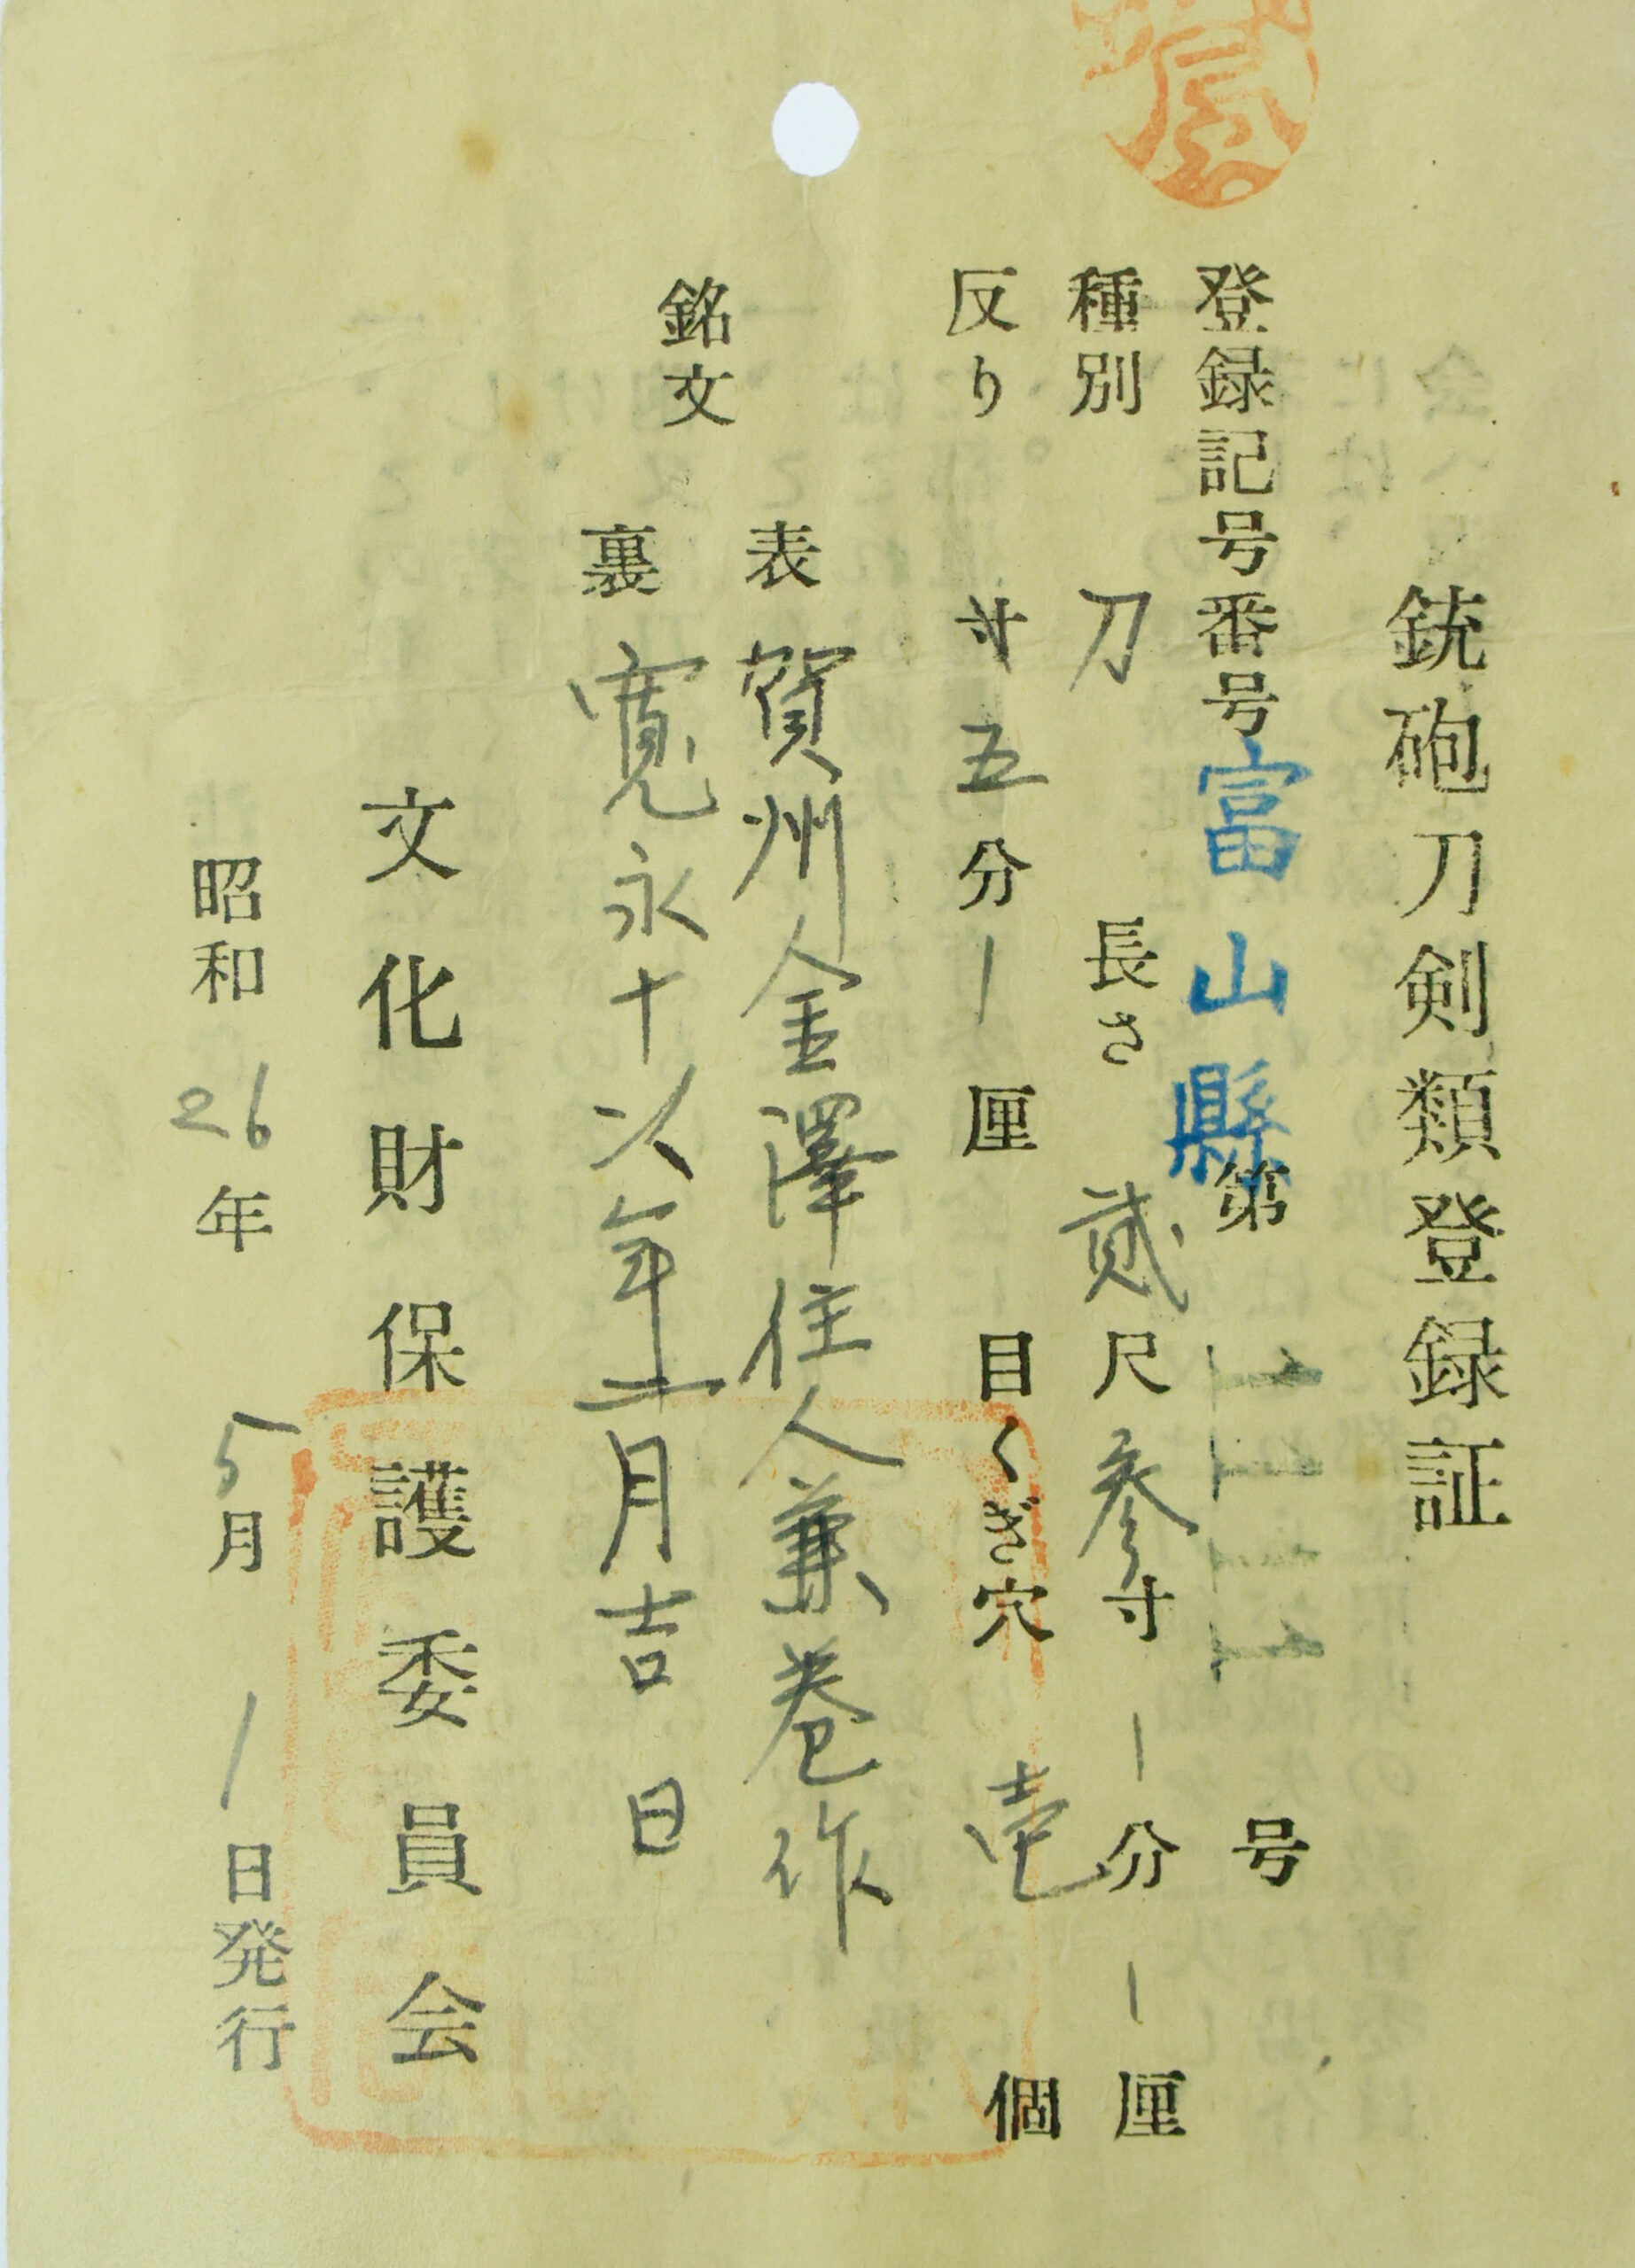 銃砲刀剣類登録証
登録記号番号 富山縣 第 1111 号
種別 刀 長さ 貳尺参寸―分―厘
反り 寸五分―厘 目くぎ穴 壱個
銘文
表 賀州金澤住人兼巻作
裏 寛永十以年二月吉日
文化財保護委員会
昭和26年5月1日発行